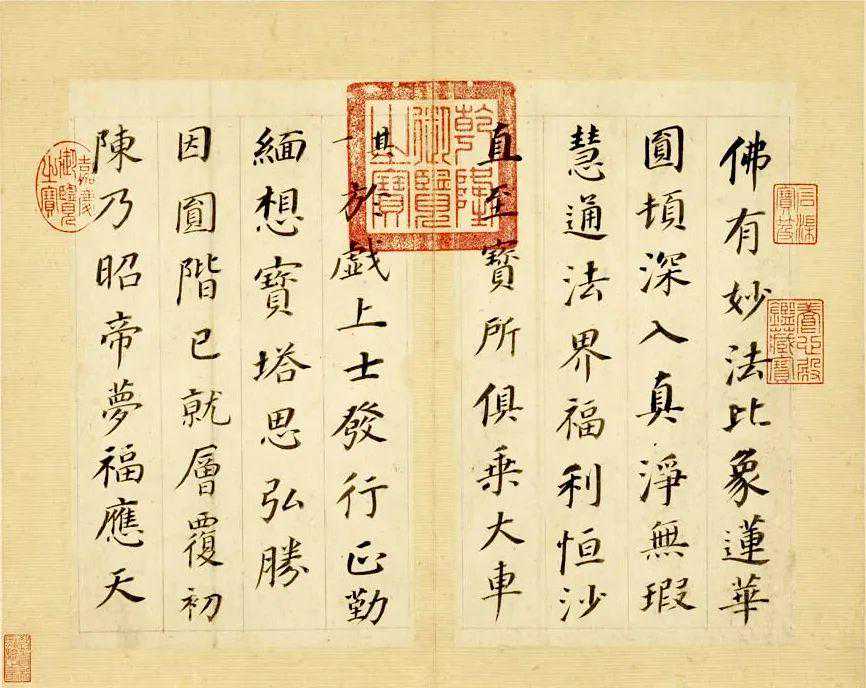 佛有妙法比象蓮華
圓頓深入真淨無瑕
慧通法界福利恒沙
直至寶所俱乘大車
其一於戲上士發行正勤
緬想寶塔思弘勝
因圓階已就層覆初
陳乃昭帝夢福應天
石渠寶笈
養心殿鑑藏寶
乾隆御覽之寶
嘉慶御覽之寶